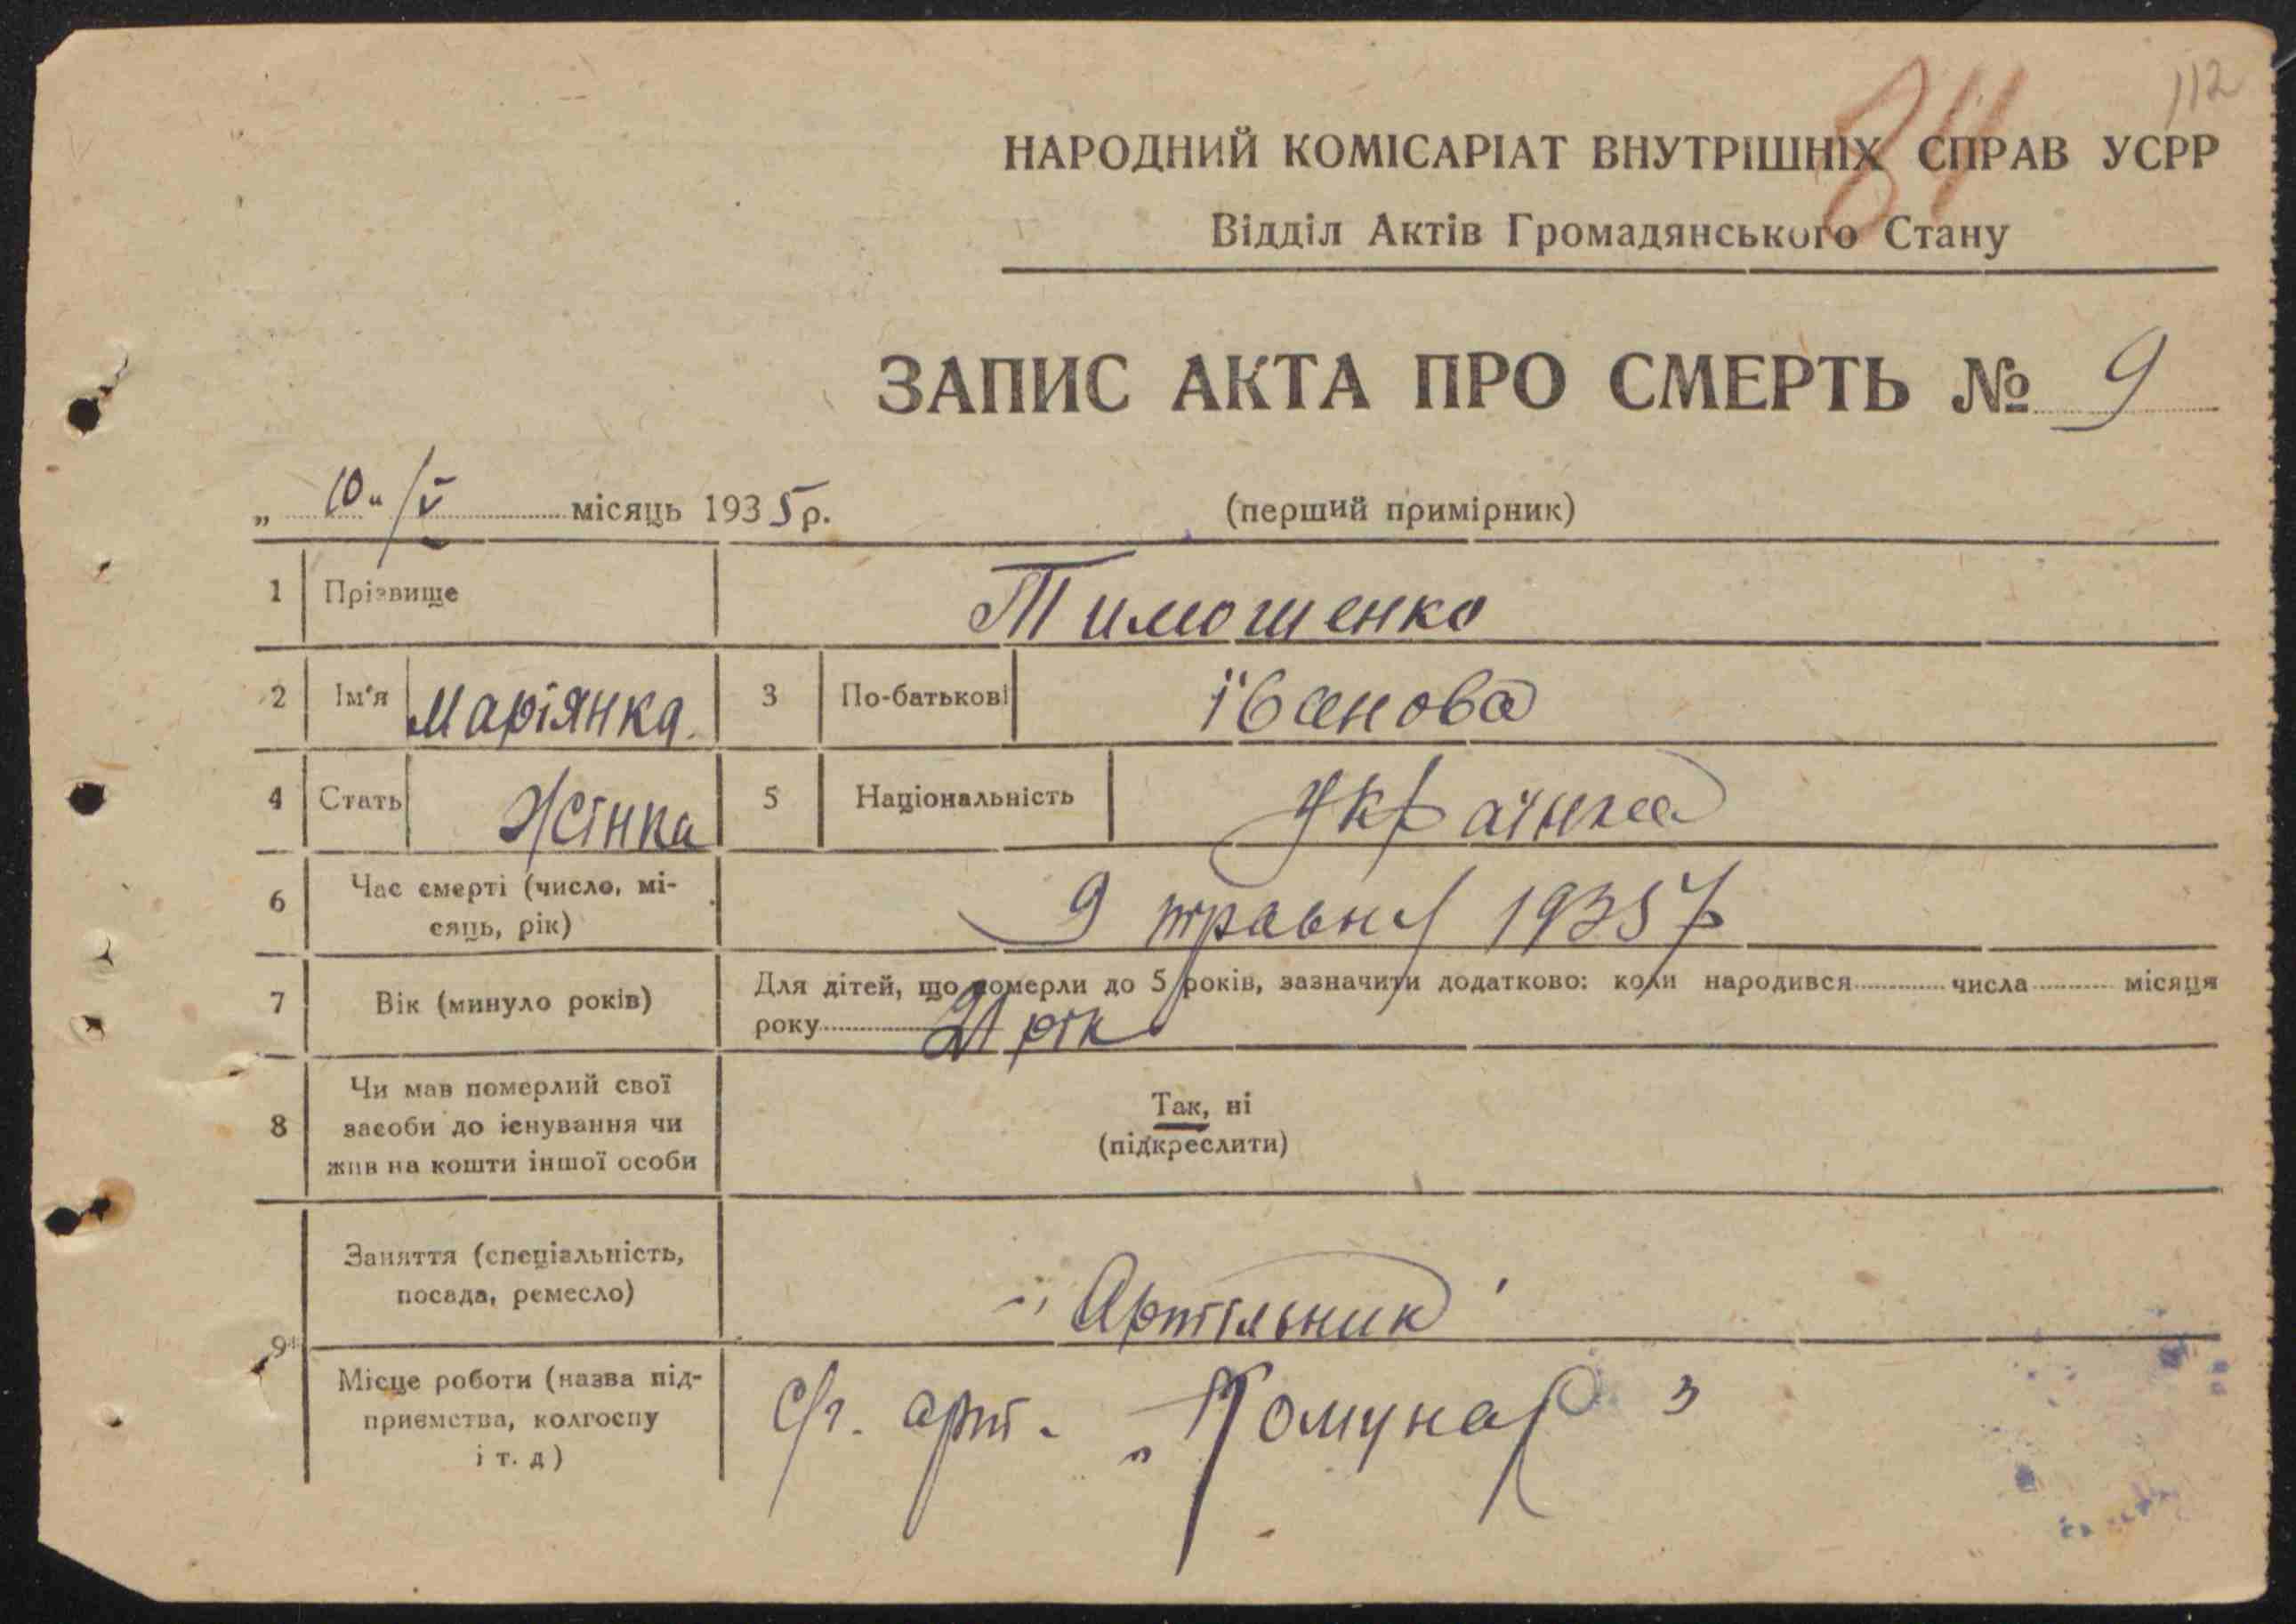 112
84
НАРОДНИЙ КОМІСАРІАТ ВНУТРІШНІХ СПРАВ УСРР
Відділ Актів Громадянського Стану
ЗАПИС АКТА ПРО СМЕРТЬ № 9
„ 10 " /V місяць 1935 р. (перший примірник)
1 Прізвище Тимошенко
2 Ім'я Маріянка. 3 По-батькові Іванова
4 Стать Жінка 5 Національність Українка
6 Час смерті (число, мі-
сяць, рік) 9 травня 1935 р
7 Вік (минуло років) Для дітей, що померли до 5 років, зазначити додатково: коли народився числа місяця
року 21 рік
8 Чи мав померлий свої
засоби до існування чи
жив на кошти іншої особи
Так, ні
(підкреслити)
9 Заняття (спеціальність,
посада, ремесло) Артільник
Місце роботи (назва під-
приємства, колгоспу
і т. д) С/г. арт. „Комунар"